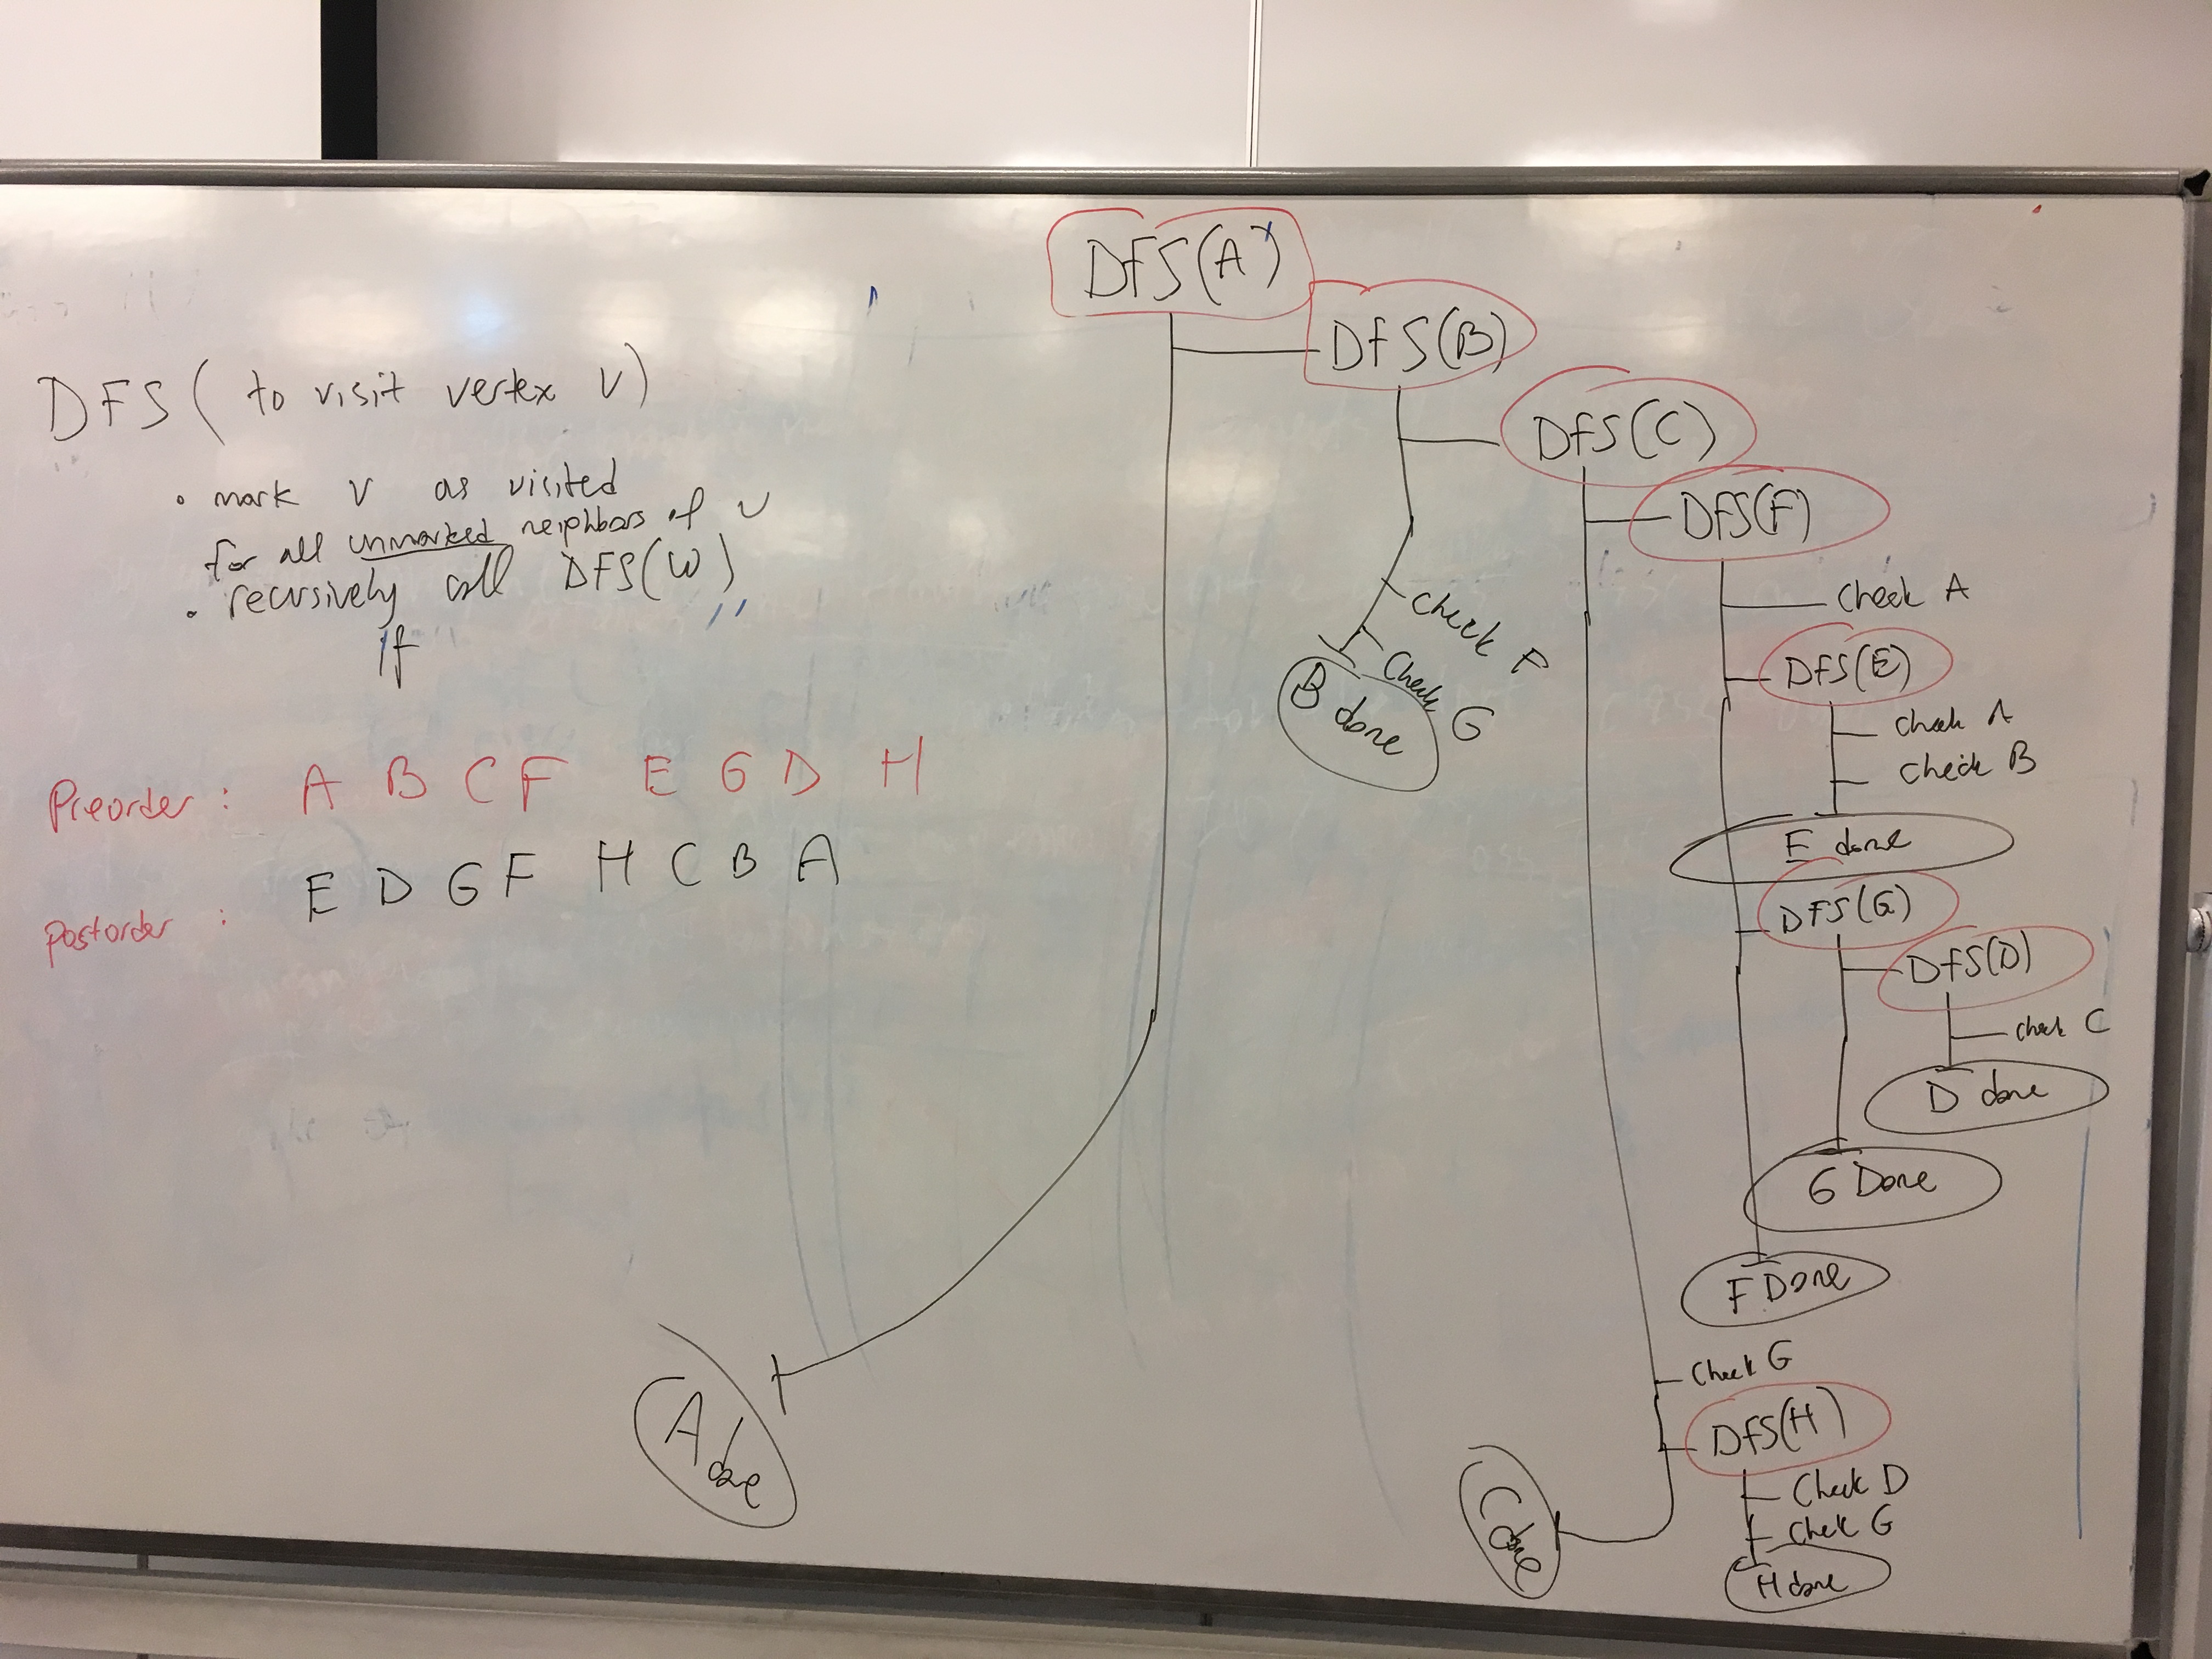 DFS ( to visit vertex V)
• mark V as visited
for all unmarked neighbors of v
• recursively call DFS(W)
if
Preorder : A B C F E G D H
Postorder : E D G F H C B A
DFS(A)
DFS(B)
DFS(C)
DFS(F)
Check A
DFS(E)
Check A
Check B
E done
DFS(G)
DFS(D)
Check C
D done
G Done
F Done
Check G
DFS(H)
Check D
Chek G
H done
C done
Check F
Check G
B done
A done